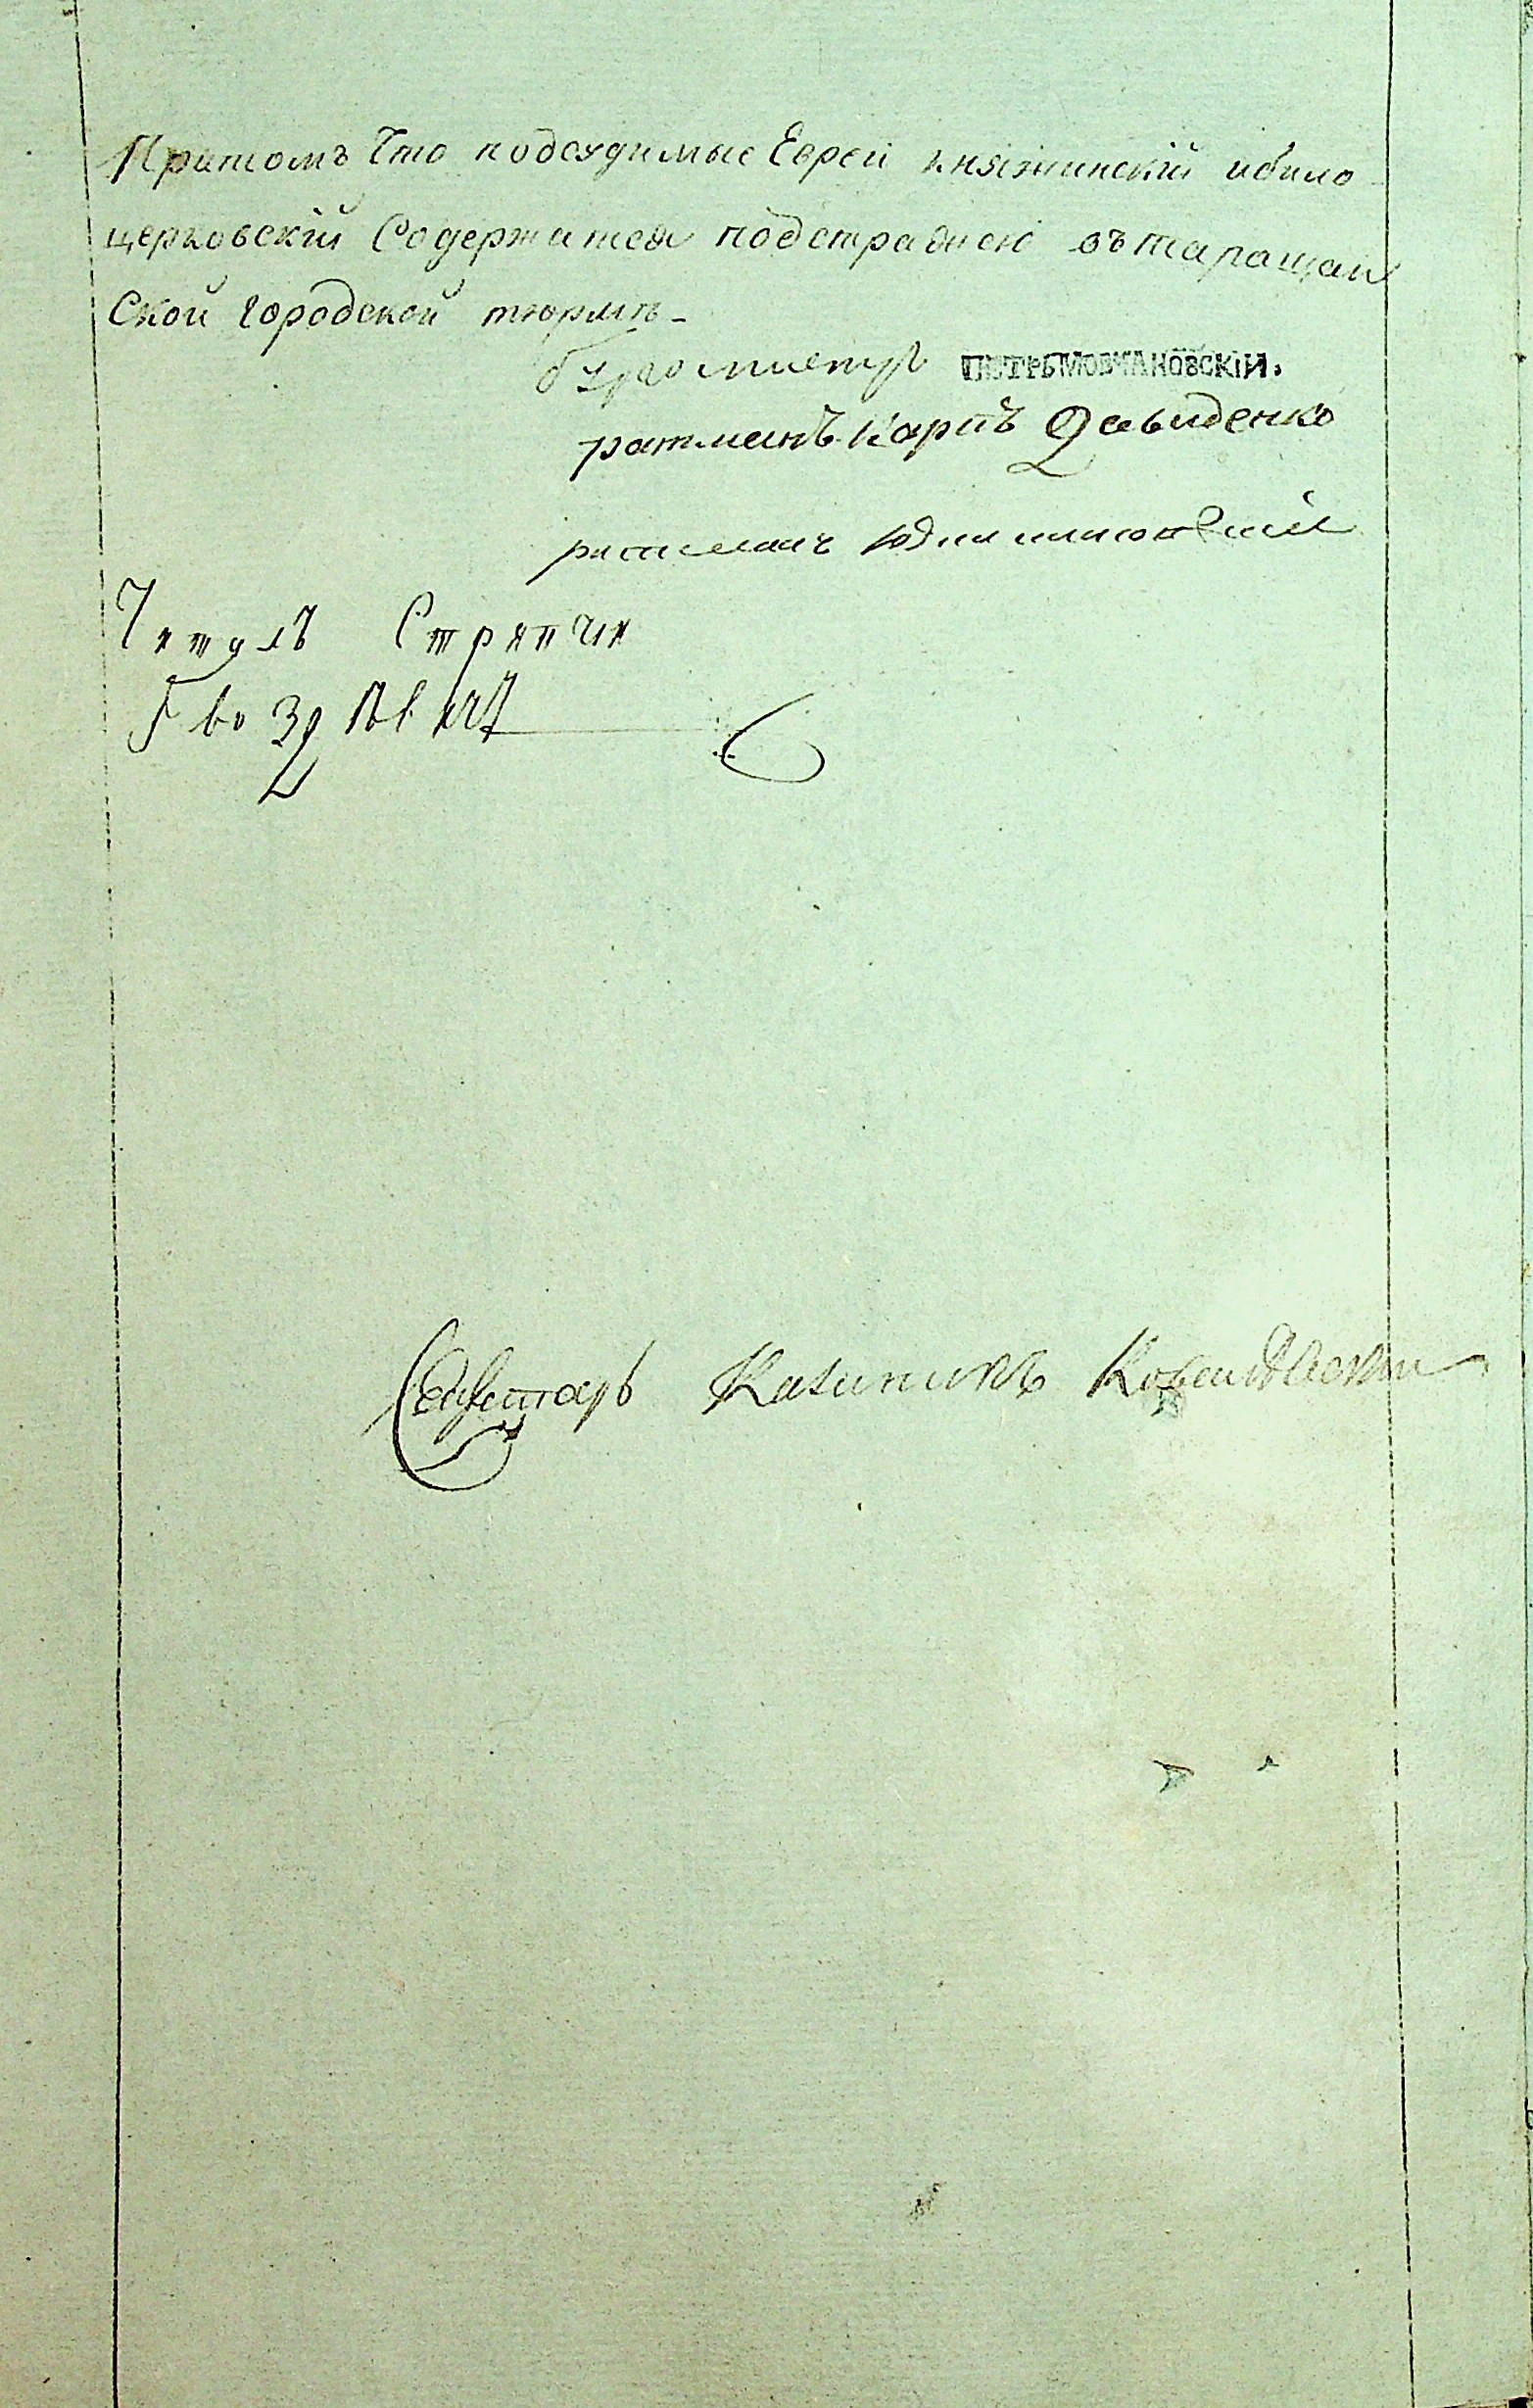 Притомъ Что подсудимые Евреи княжинскій ибило
церковскій Содержатся подстражею вътаращан
Ской городской тюрмѣ -
бургомистръ ПЕТРЪ МОВЧАНОВСКІЙ.
ратманъ Карпъ Давиденко
ратманъ
Читалъ Стряпчи
Секретарь Казимиръ